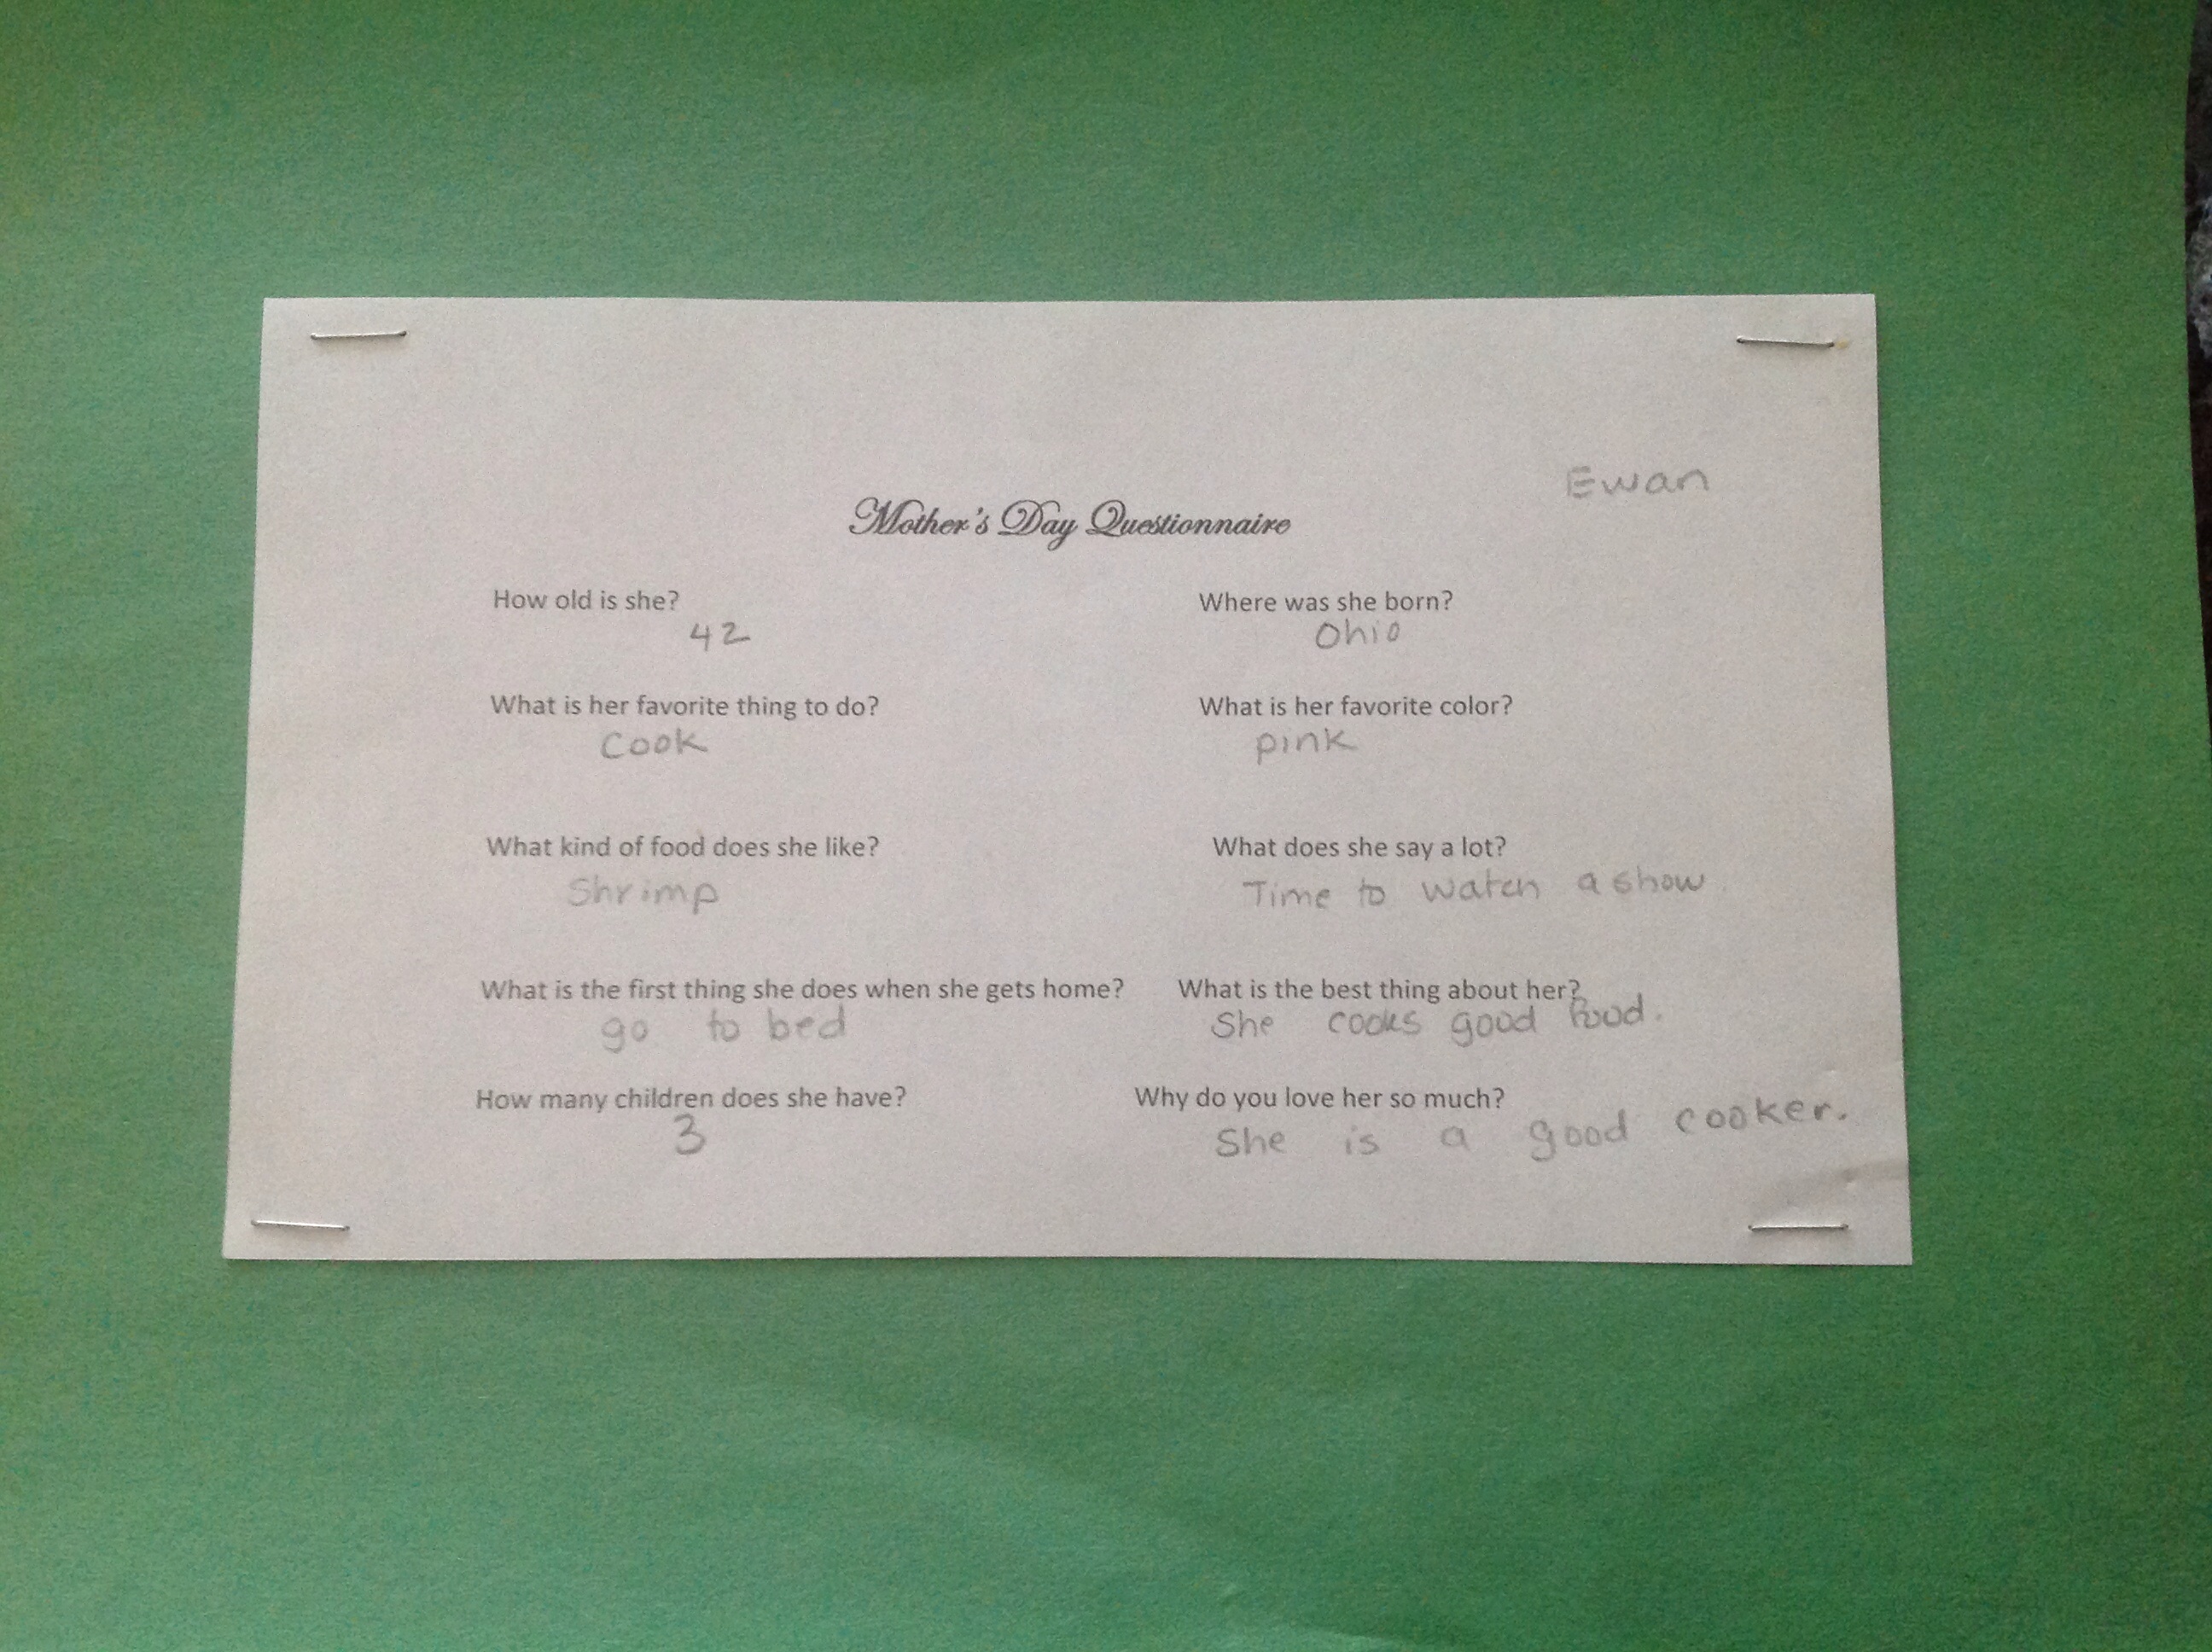 Ewan
Mother's Day Questionnaire
How old is she?
42
Where was she born?
Ohio
What is her favorite thing to do?
Cook
What is her favorite color?
pink
What kind of food does she like?
Shrimp
What does she say a lot?
Time to watch a show.
What is the first thing she does when she gets home?
go to bed
What is the best thing about her?
She cooks good food.
How many children does she have?
3
Why do you love her so much?
She is a good cooker.